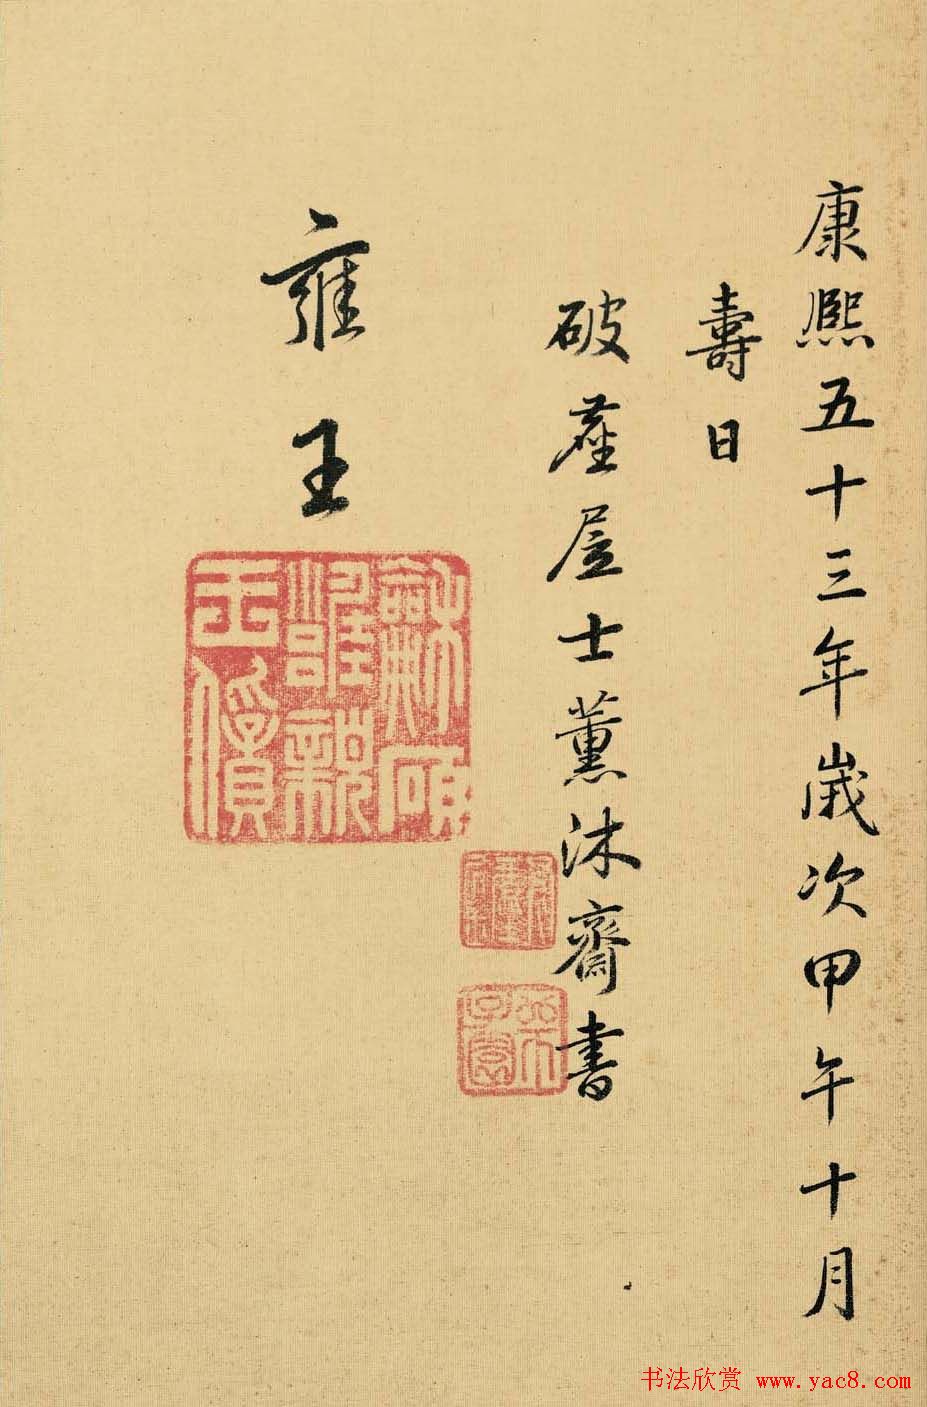 康熙五十三年歲次甲午十月
壽日
破塵居士薰沐齋書
雍王
龢碩
雝親
王寶
书法欣赏 www.yac8.com